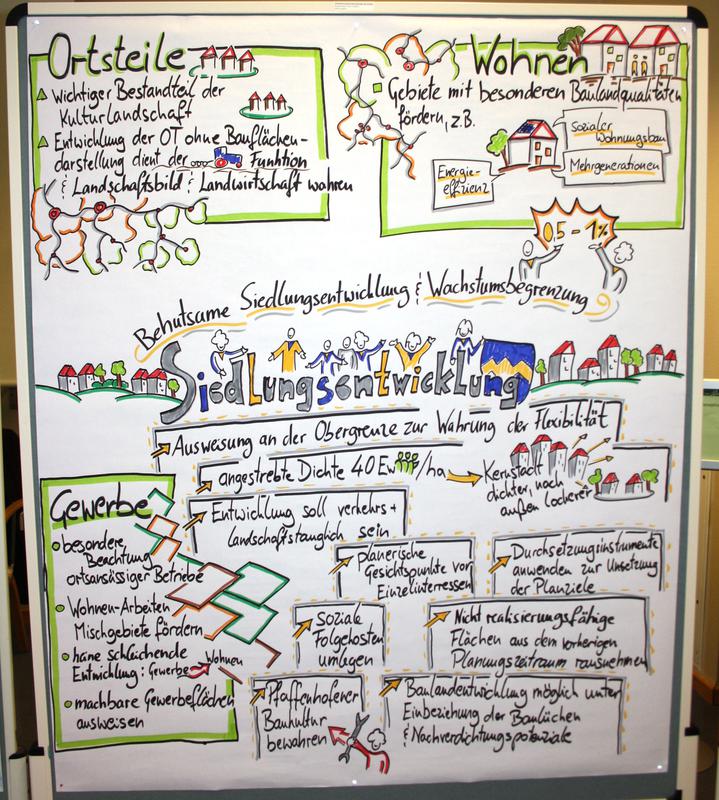 Ortsteile
wichtiger Bestandteil der
Kulturlandschaft
Entwicklung der OT ohne Bauflächen-
darstellung dient der Funktion
& Landschaftsbild & Landwirtschaft wahren
Wohnen
Gebiete mit besonderen Baulandqualitäten
fördern, z.B.
Sozialer
Wohnungsbau
Mehrgenerationen
Energie-
effizienz
0,5 - 1%
Behutsame Siedlungsentwicklung & Wachstumsbegrenzung
Siedlungsentwicklung
Ausweisung an der Obergrenze zur Wahrung der Flexibilität
angestrebte Dichte 40 Ew/ha
Kernstadt
dichter, nach
außen lockerer
Entwicklung soll verkehrs +
landschaftstauglich sein
planerische
Gesichtspunkte vor
Einzelinteressen
Durchsetzungsinstrumente
anwenden zur Umsetzung
der Planziele
soziale
Folgekosten
umlegen
Nicht realisierungsfähige
Flächen aus dem vorherigen
Planungszeitraum rausnehmen
Pfaffenhofener
Baukultur
bewahren
Baulandentwicklung möglich unter
Einbeziehung der Baulücken
& Nachverdichtungspotenziale
Gewerbe
besondere
Beachtung
ortsansässiger Betriebe
Wohnen-Arbeiten
Mischgebiete fördern
keine schleichende
Entwicklung: Gewerbe Wohnen
machbare Gewerbeflächen
ausweisen